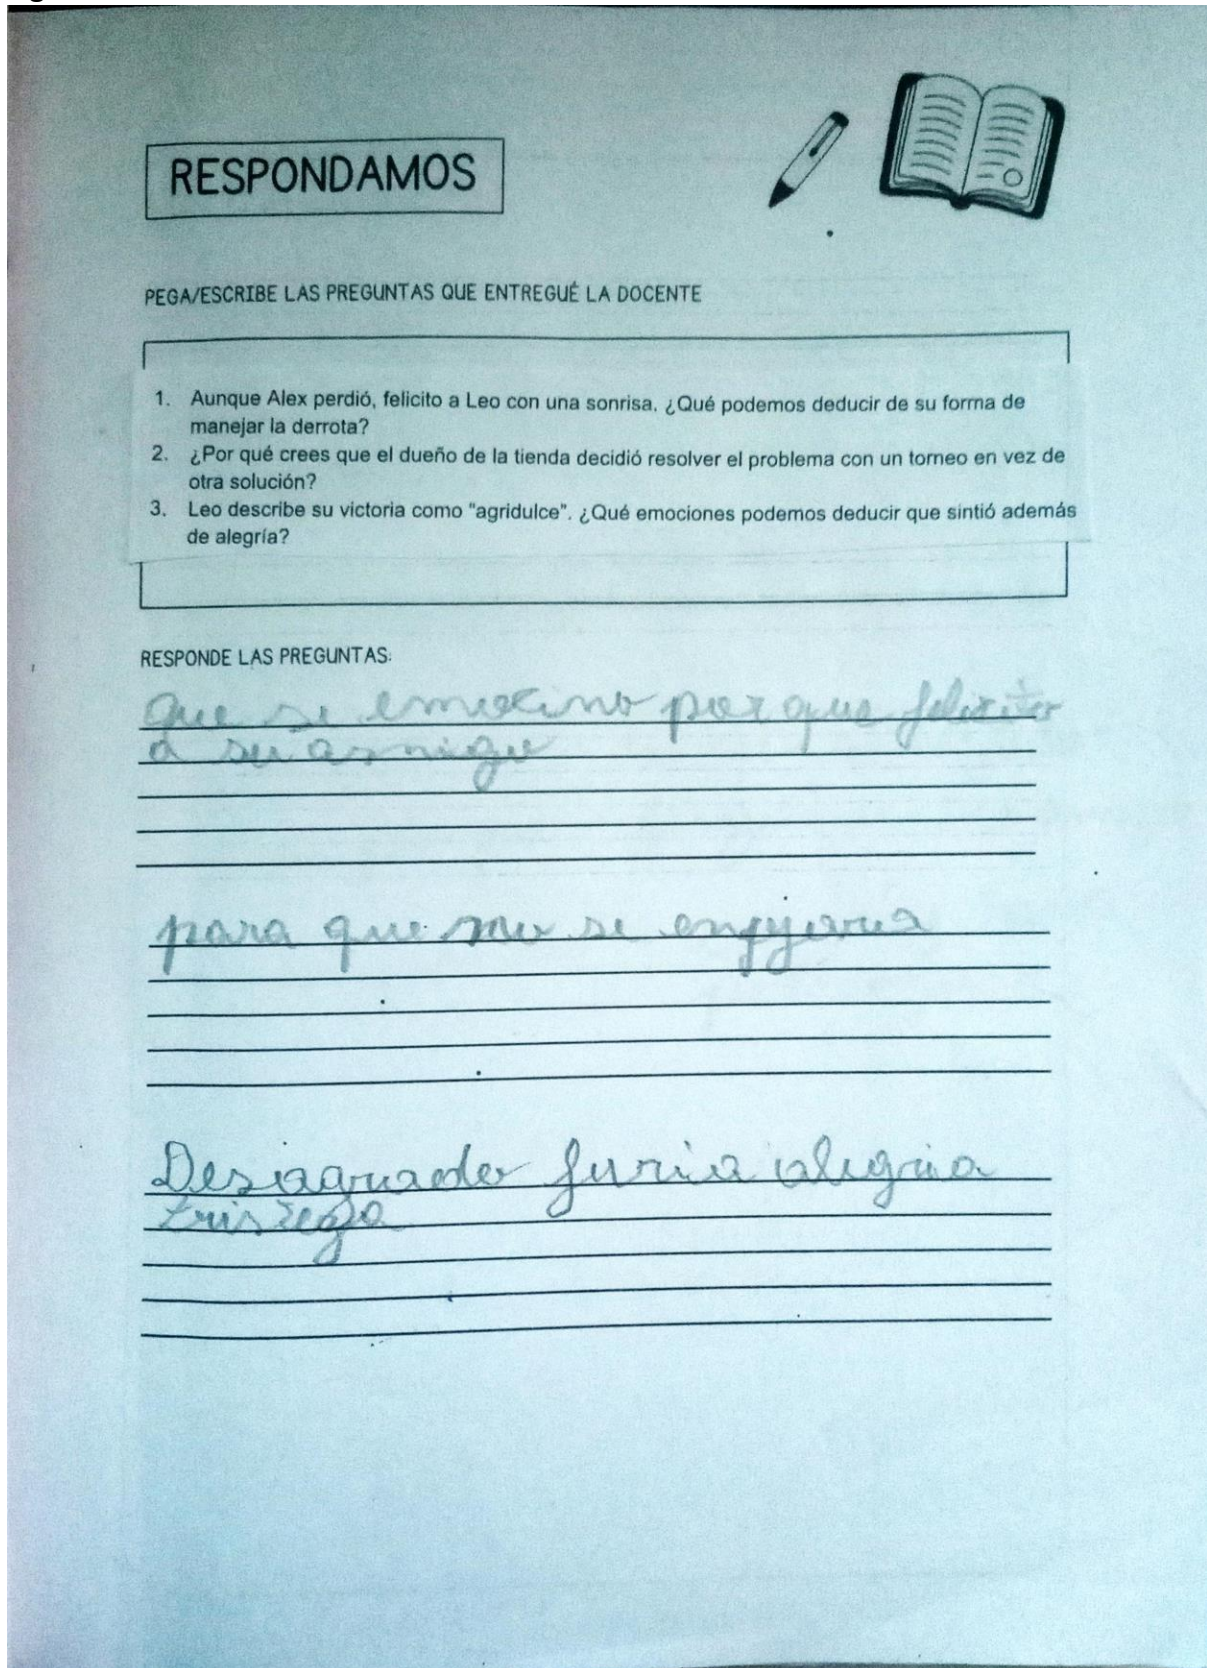 RESPONDAMOS
PEGA/ESCRIBE LAS PREGUNTAS QUE ENTREGUÉ LA DOCENTE
1. Aunque Alex perdió, felicito a Leo con una sonrisa. ¿Qué podemos deducir de su forma de
manejar la derrota?
2. ¿Por qué crees que el dueño de la tienda decidió resolver el problema con un torneo en vez de
otra solución?
3. Leo describe su victoria como "agridulce". ¿Qué emociones podemos deducir que sintió además
de alegría?
RESPONDE LAS PREGUNTAS:
que se emocino por que
a su amigo
para que no se
Desagrado furia alegria
tristeza